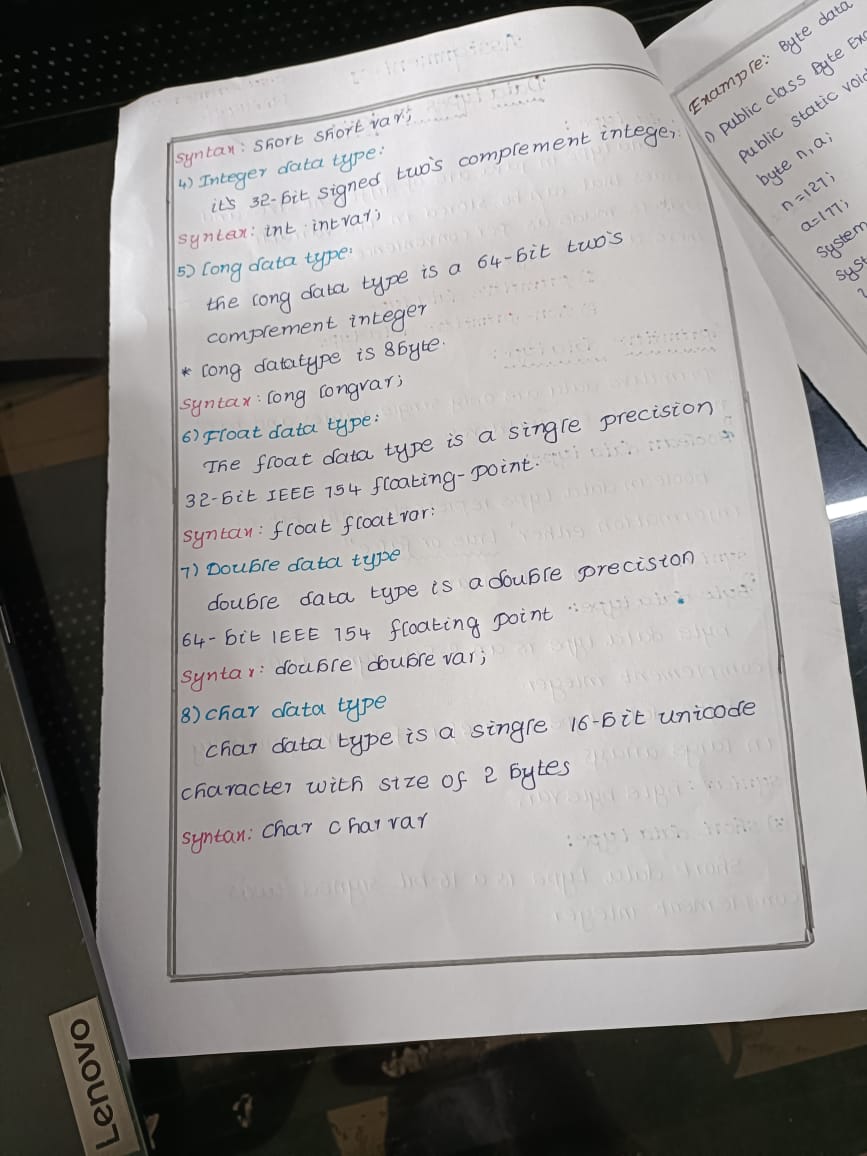 Syntax: Short Short var;
4) Integer data type:
it's 32-bit signed two's complement integer
Syntax: int intvar;
5) long data type:
the long data type is a 64-bit two's
complement integer
* long datatype is 8byte.
Syntax: long longvar;
6) Float data type:
The float data type is a single precision
32-bit IEEE 754 floating-point.
Syntax: float floatvar:
7) Double data type
double data type is a double precision
64-bit IEEE 754 floating point
Syntax: double double var;
8) char data type
char data type is a single 16-bit unicode
character with size of 2 bytes
Syntax: Char Charvar
Example: Byte data
1) public class Byte
public static void
byte n,a;
n=127;
a=177;
System
Lenovo